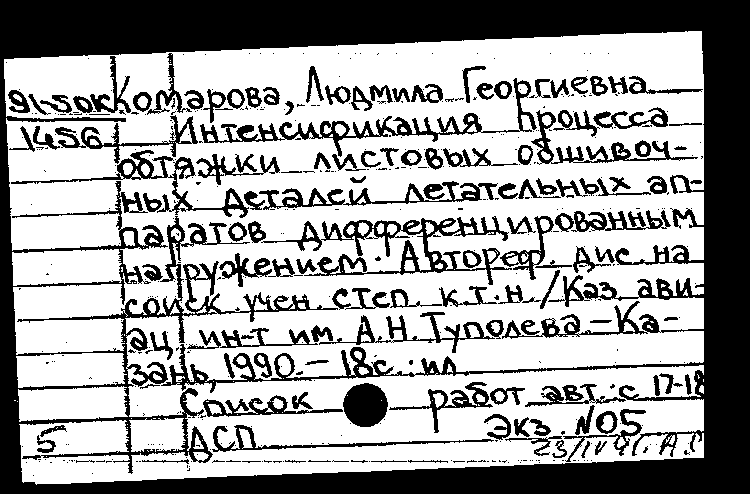 91-5ок Комарова, Людмила Георгиевна
1456 Интенсификация процесса
обтяжки листовых обшивоч-
ных деталей летательных ап-
паратов дифференцированным
нагружением. Автореф. дис. на
соиск. учен. степ. к.т.н. / Каз. ави-
ац. ин-т им. А.Н. Туполева. - Ка-
зань, 1990. - 18 с. : ил.
Список работ авт.: с. 17-18
5 ДСП Экз. №05
23/IV 91г.